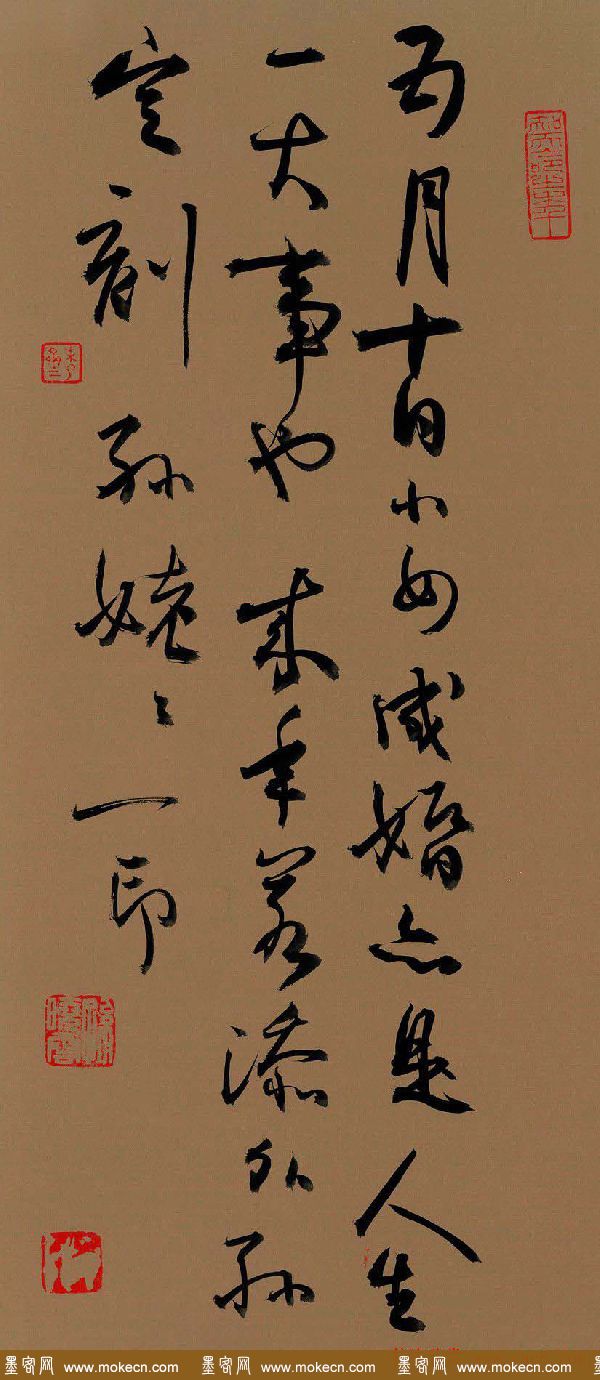 五月十日小女成婚亦是人生
一大事也 来年若添外孙
定刻 孙姥々一印
墨客网 www.mokecn.com 墨客网 www.mokecn.com 墨客网 www.mokecn.com